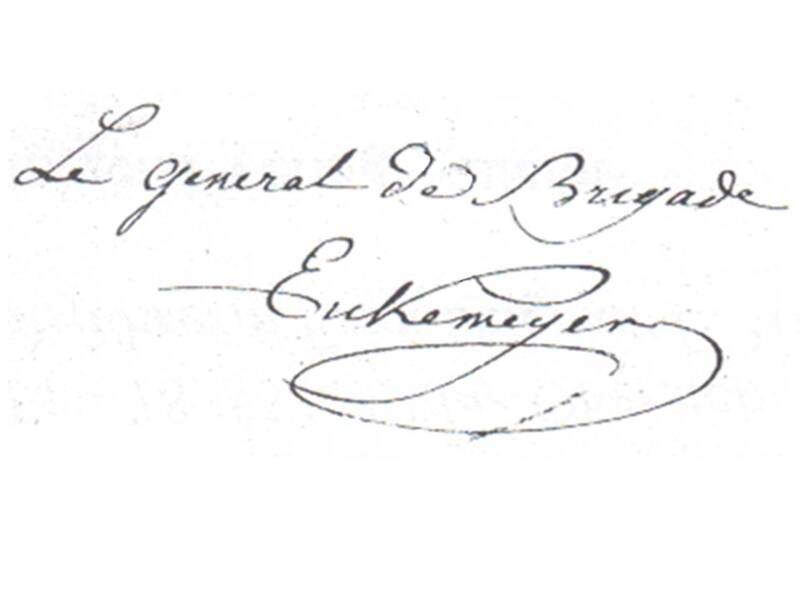 Le general de Brigade
Eickemeyer